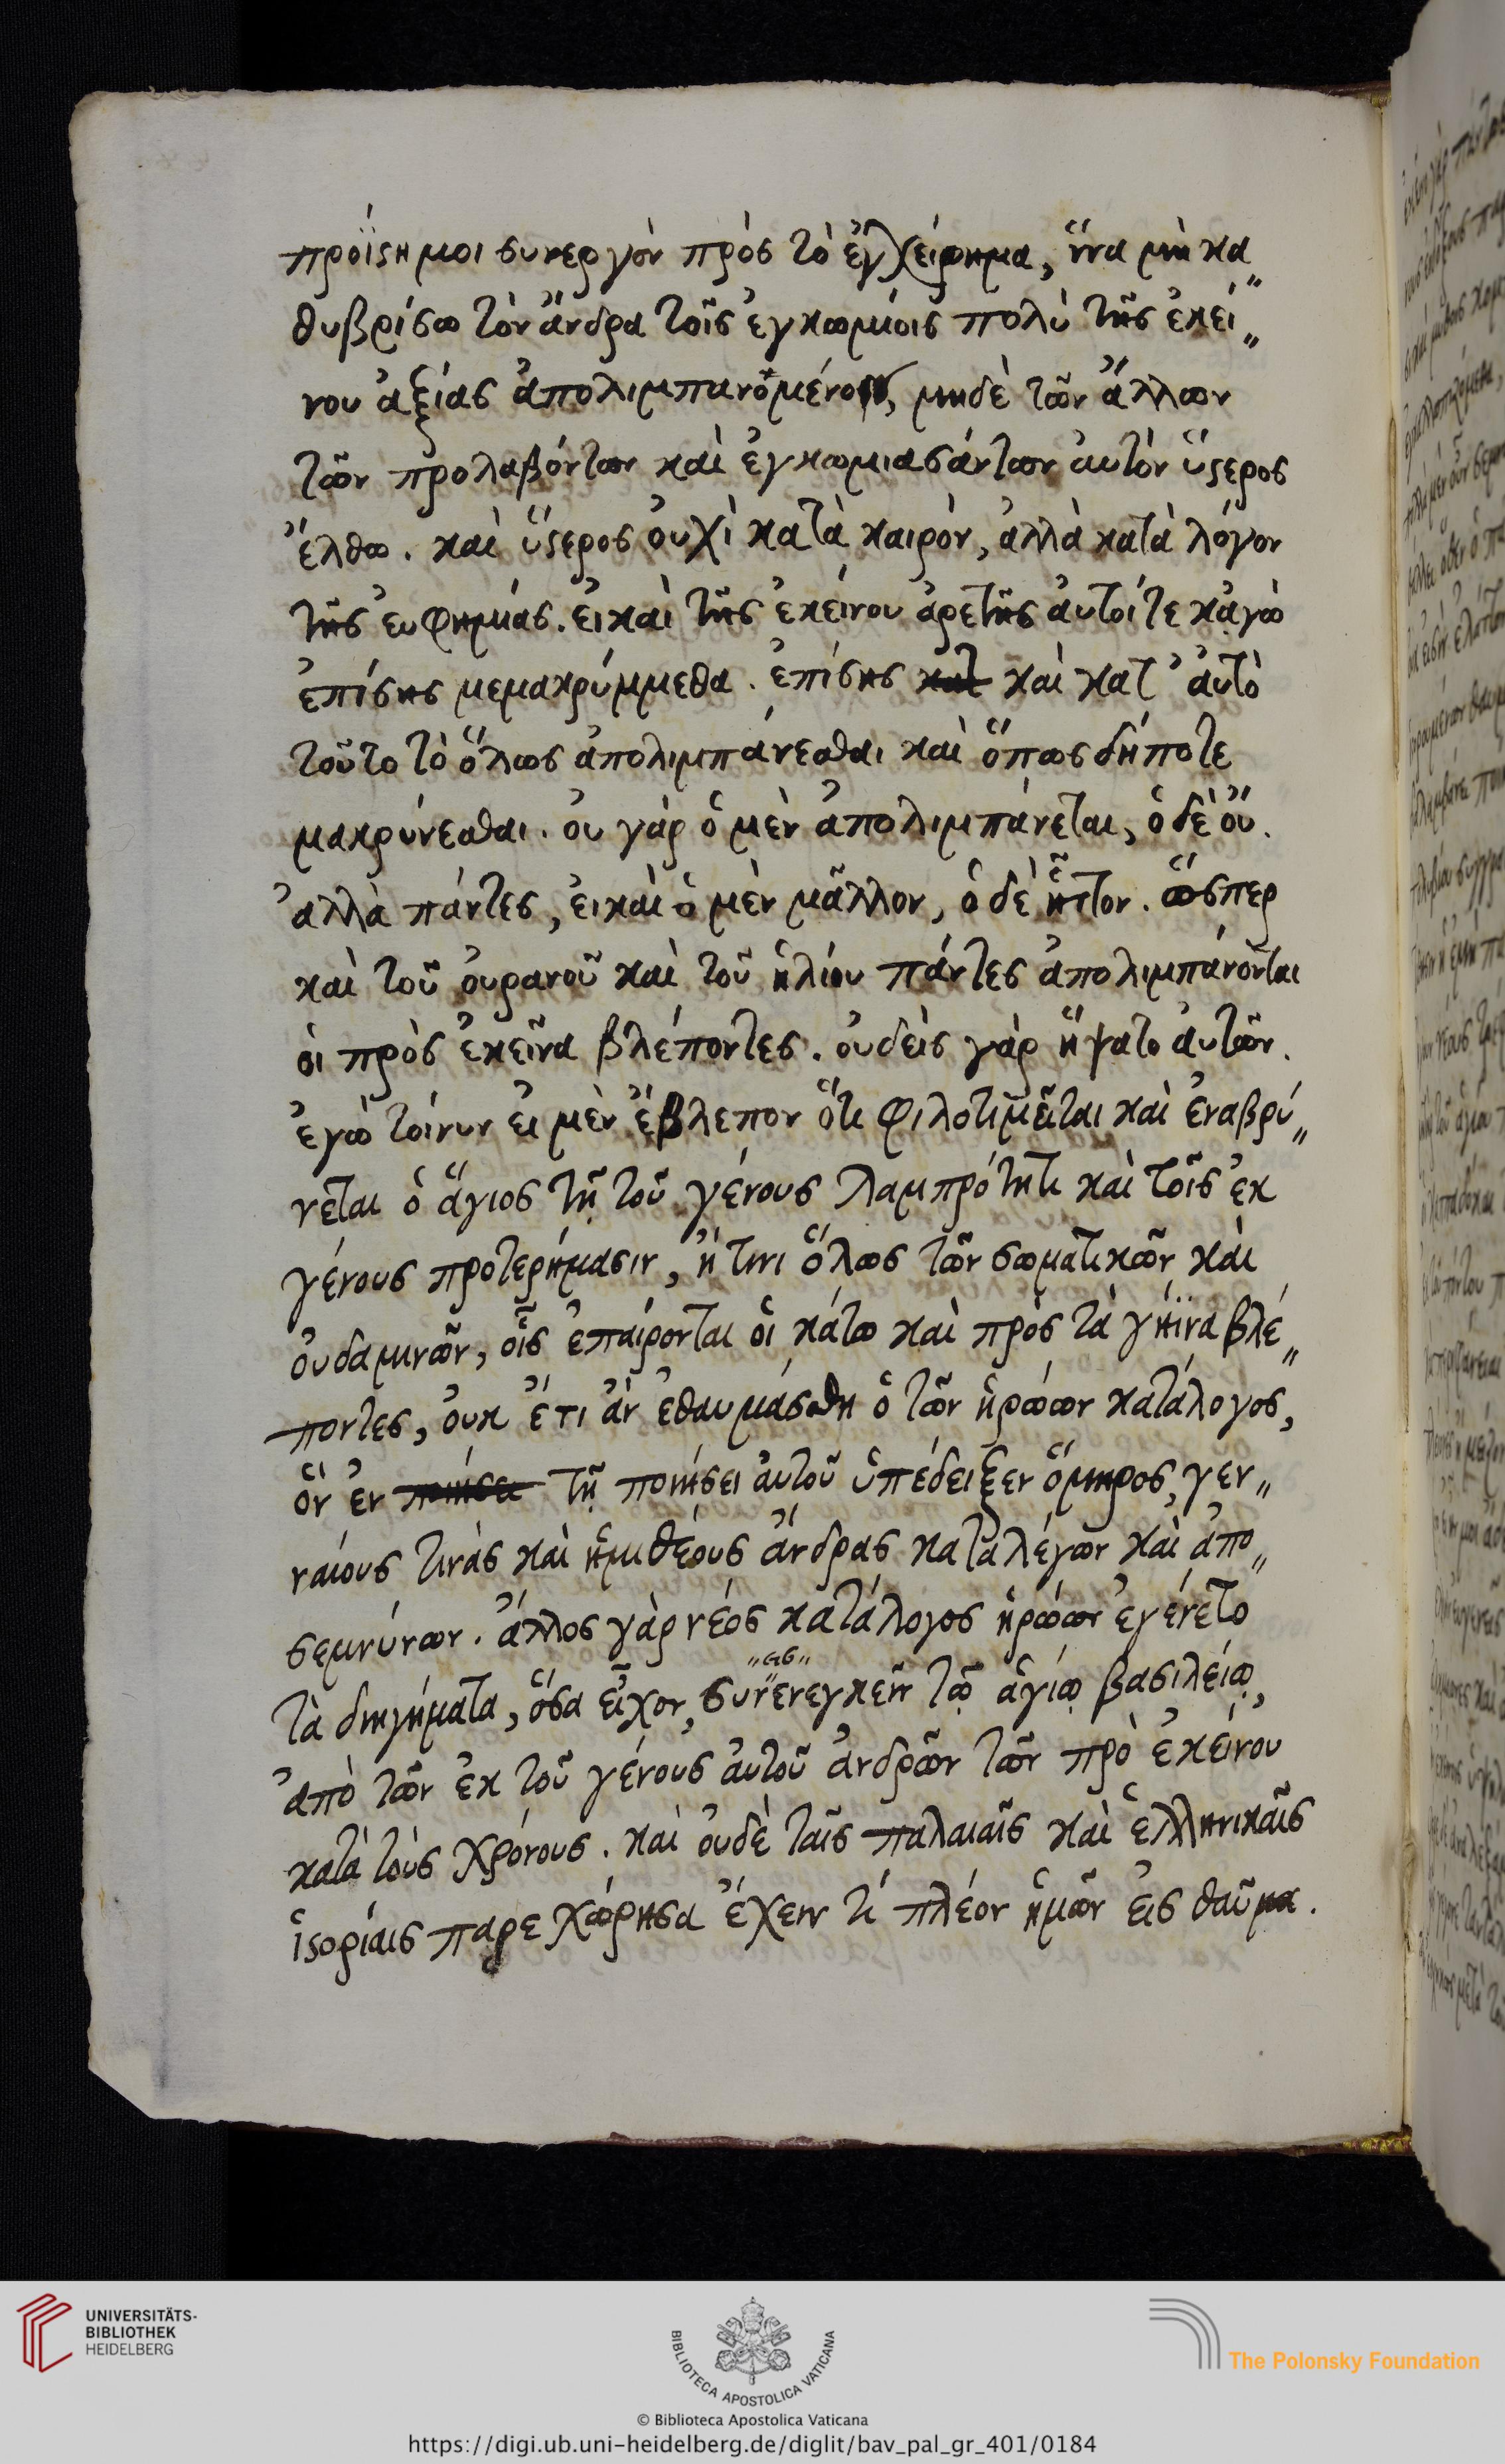 προΐστημοι συνεργὸν πρὸς τὸ ἐγχείρημα, ἵνα μὴ κα„
θυβρίσω τὸν ἄνδρα τοῖς ἐγκωμίοις πολὺ τῆς ἐκεί„
νου ἀξίας ἀπολιμπανομένοις, μηδὲ τῶν ἄλλων
τῶν προλαβόντων καὶ ἐγκωμιασάντων αὐτὸν ὕστερος
ἔλθω. καὶ ὕστερος οὐχὶ κατὰ καιρὸν, ἀλλὰ κατὰ λόγον
τῆς εὐφημίας. εἰ καὶ τῆς ἐκείνου ἀρετῆς αὐτοί τε κἀγὼ
ἐπίσης μεμακρύμμεθα. ἐπίσης κατ καὶ κατ' αὐτὸ
τοῦτο τὸ ὅλως ἀπολιμπάνεσθαι καὶ ὅπως δήποτε
μακρύνεσθαι. οὐ γὰρ ὁ μὲν ἀπολιμπάνεται, ὁ δὲ οὔ.
ἀλλὰ πάντες, εἰ καὶ ὁ μὲν μᾶλλον, ὁ δὲ ἧττον. ὥσπερ
καὶ τοῦ οὐρανοῦ καὶ τοῦ ἡλίου πάντες ἀπολιμπάνονται
οἱ πρὸς ἐκεῖνα βλέποντες. οὐδεὶς γὰρ ἥψατο αὐτῶν.
ἐγὼ τοίνυν εἰ μὲν ἔβλεπον ὅτι φιλοτιμεῖται καὶ ἐναβρύ„
νεται ὁ ἅγιος τῇ τοῦ γένους λαμπρότητι καὶ τοῖς ἐκ
γένους προτερήμασιν, ἤ τινι ὅλως τῶν σωματικῶν καὶ
οὐδαμινῶν, οἷς ἐπαίρονται οἱ κάτω καὶ πρὸς τὰ γήϊνα βλέ„
ποντες, οὐκ ἔτι ἂν ἐθαυμάσθη ὁ τῶν ἡρώων κατάλογος,
ὃν ἐν ποιήσει τῇ ποιήσει αὐτοῦ ὑπέδειξεν ὅμηρος, γεν„
ναίους τινὰς καὶ ἡμιθέους ἄνδρας καταλέγων καὶ ἀπο„
σεμνύνων. ἄλλος γὰρ νέος κατάλογος ἡρώων ἐγένετο
„ας„
τὰ διηγήματα, ὅσα εἶχον, συνενεγκεῖν τῷ ἁγίῳ βασιλείῳ,
ἀπὸ τῶν ἐκ τοῦ γένους αὐτοῦ ἀνδρῶν τῶν πρὸ ἐκείνου
κατὰ τοὺς χρόνους. καὶ οὐδὲ ταῖς παλαιαῖς καὶ ἑλληνικαῖς
ἱστορίαις παρεχώρησα ἔχειν τί πλέον ἡμῶν εἰς θαῦμα.
UNIVERSITÄTS-
BIBLIOTHEK
HEIDELBERG
BIBLIOTECA APOSTOLICA VATICANA
The Polonsky Foundation
© Biblioteca Apostolica Vaticana
https://digi.ub.uni-heidelberg.de/diglit/bav_pal_gr_401/0184